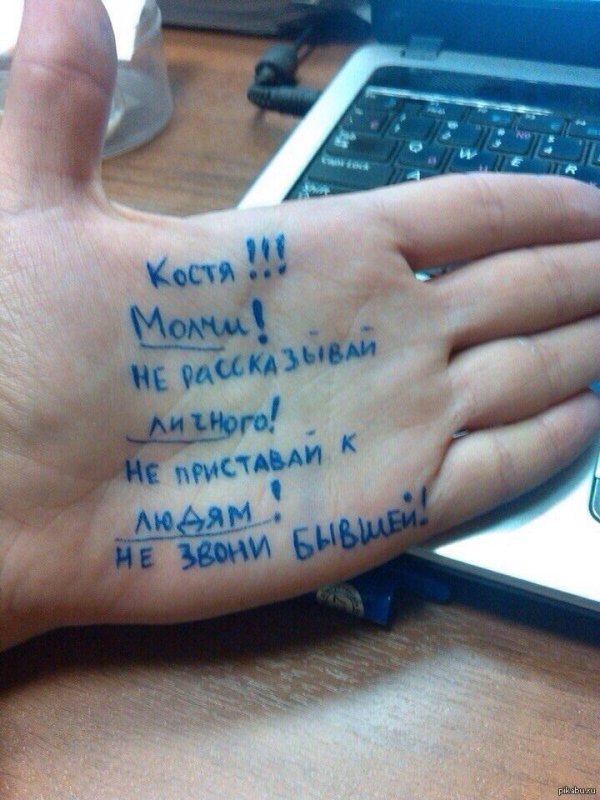 Костя!!!
Молчи!
не рассказывай
личного!
не приставай к
людям!
не звони бывшей!
Caps Lock
Q W E R
pikabu.ru